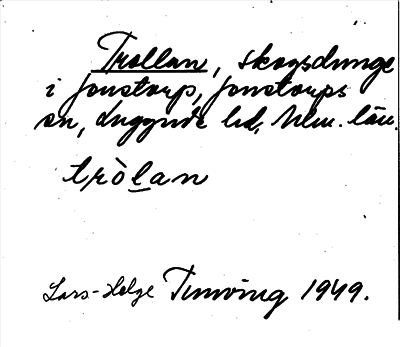 Trollan, skogsdunge
i Jonstorp, Jonstorps
sn, Luggude hd, Mlm. län.
tròlan
Lars-Helge Tunving 1949.